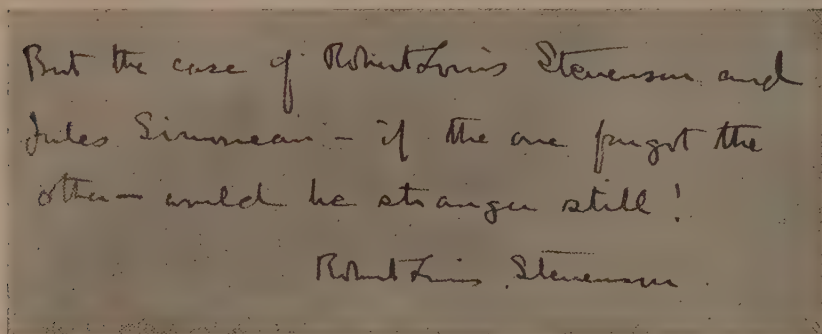 But the case of Robert Louis Stevenson and
Jules Simoneau - if the one forgot the
other - would be stranger still!
Robert Louis Stevenson